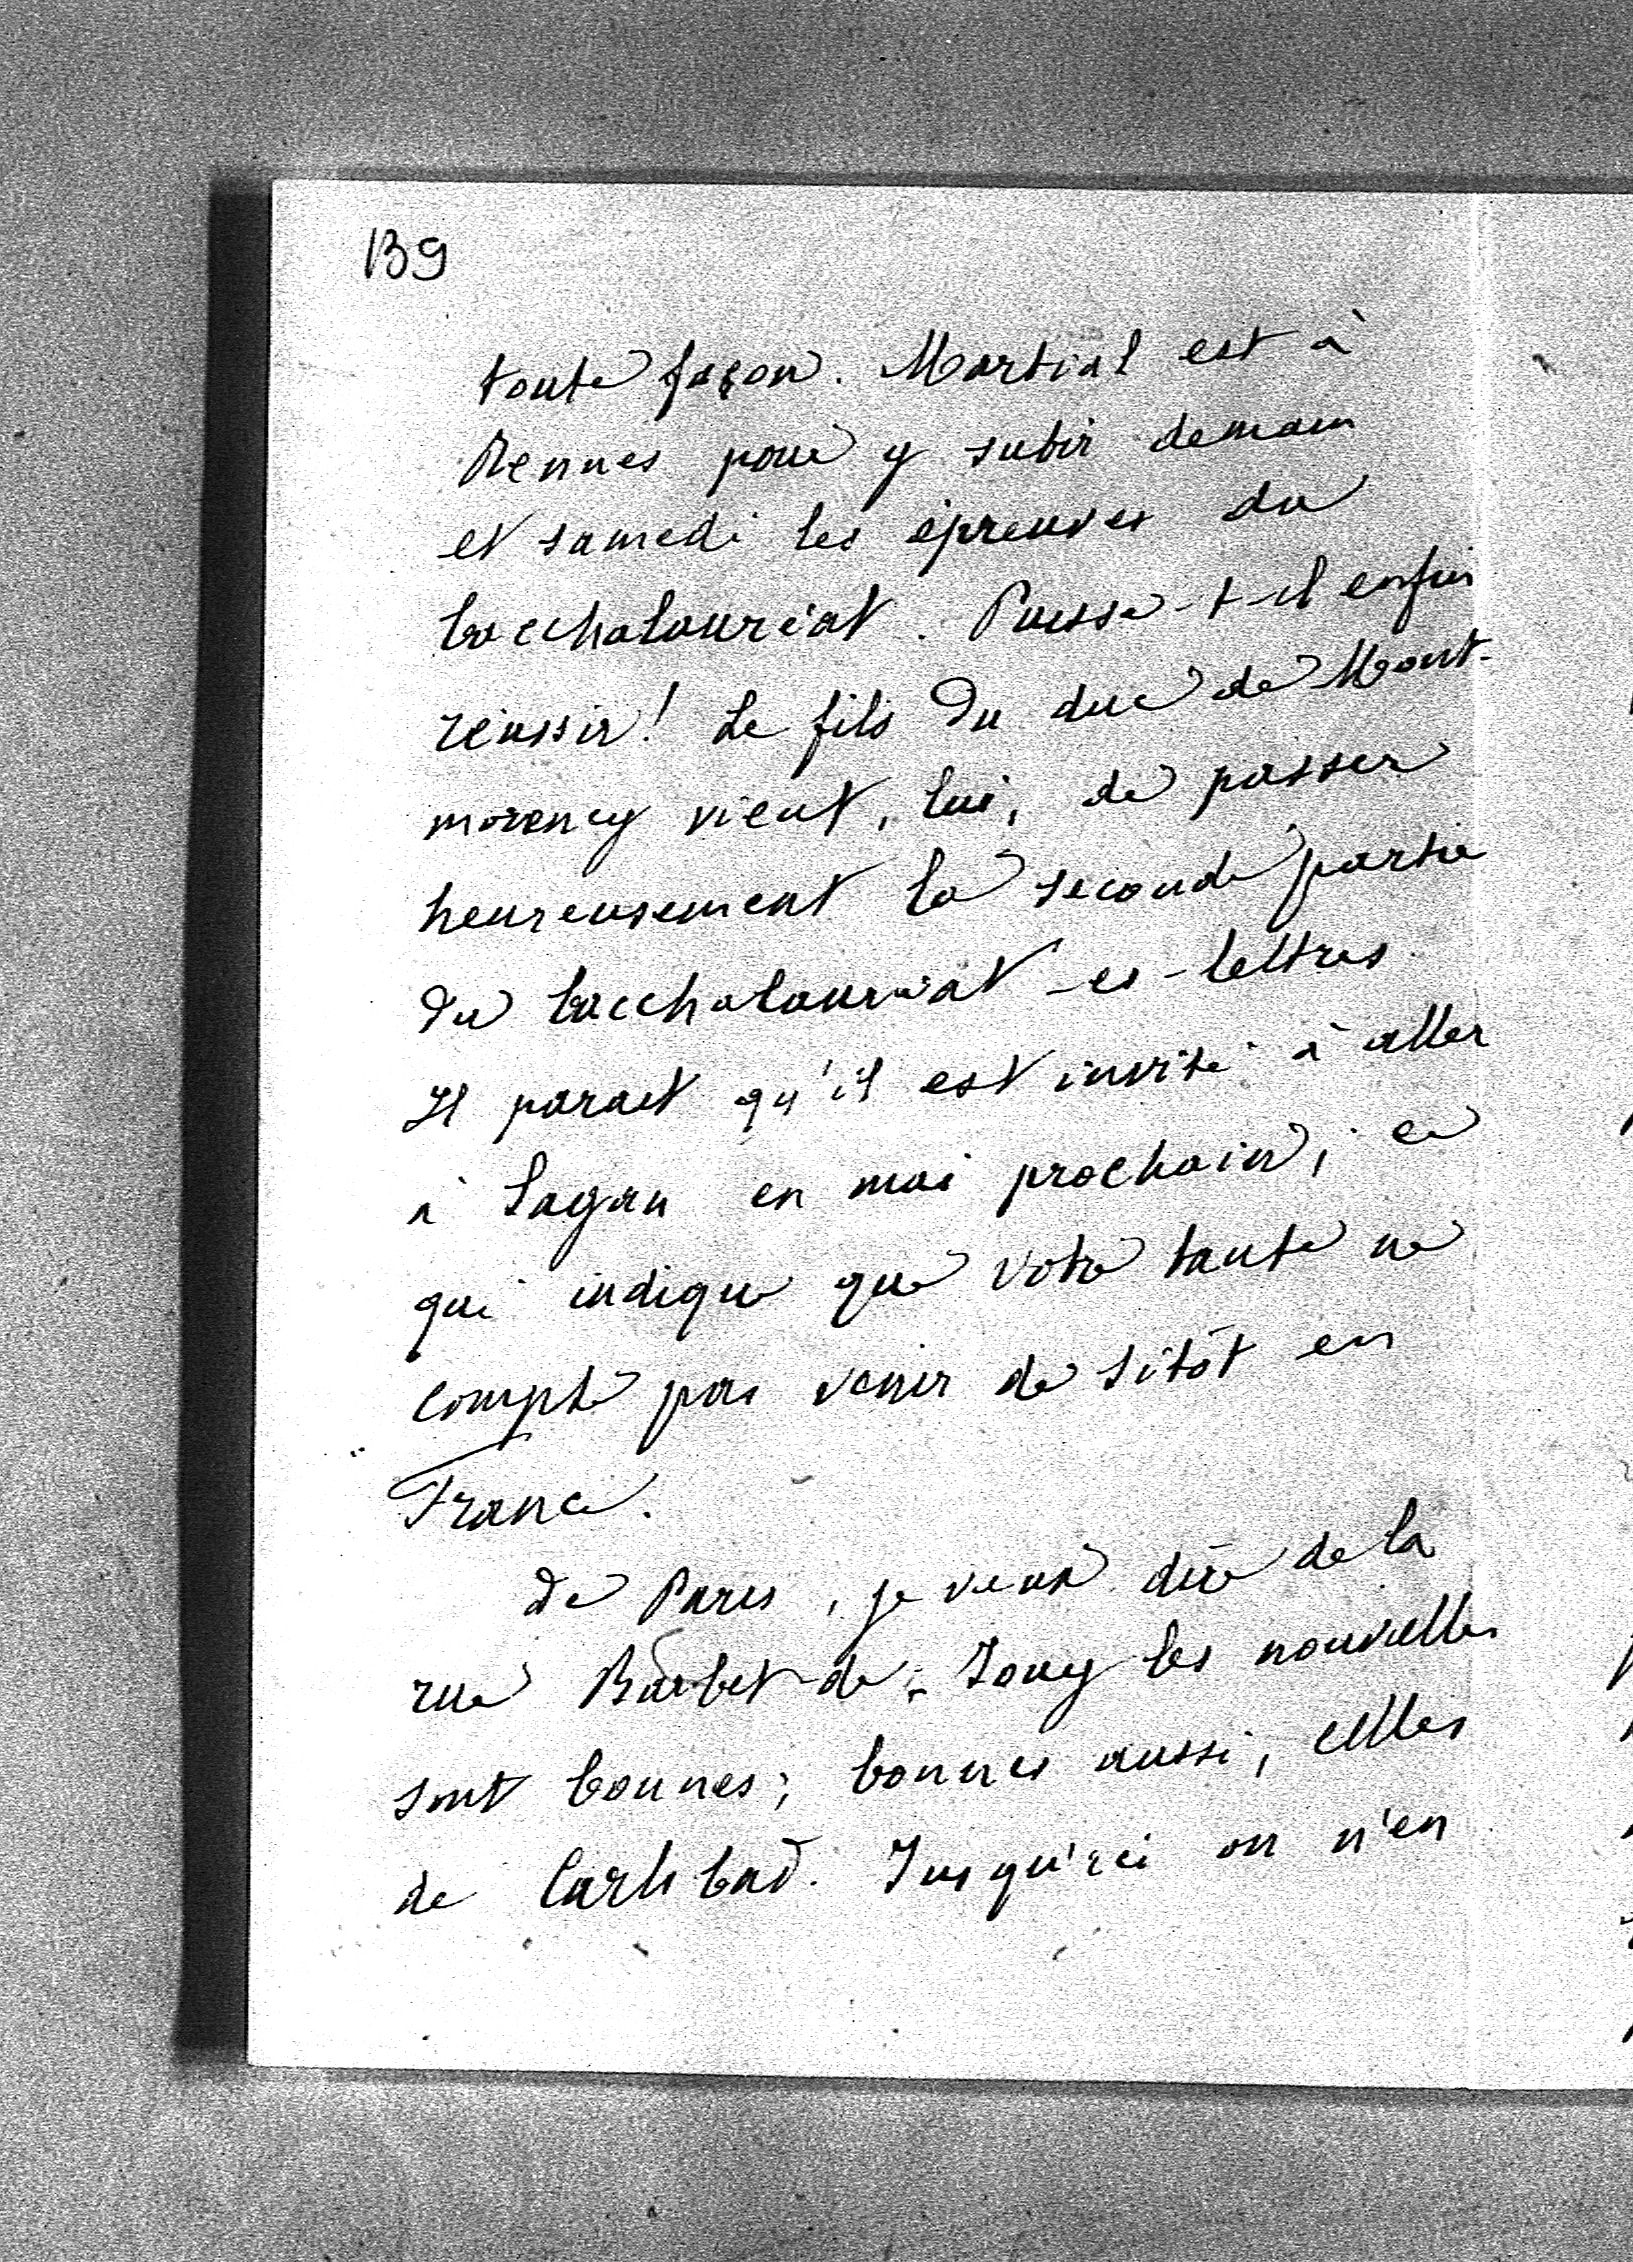 139
toute façon. Martial est à
Rennes pour y subir demain
et samedi les épreuves du
baccholauréat. Puisse-t-il enfin
réussir! Le fils du duc de Mont-
morency vient, lui, de passer
heureusement la seconde partie
du baccholauréat-es-lettres
Il parait qu'il est invité à aller
à Sagan en mai prochain, ce
qui indique que votre tante ne
compte pas venir de sitôt en
France.
de Paris, je veux dire de la
rue Barbet-de-Jouy les nouvelles
sont bonnes; bonnes aussi, celles
de Carlsbad. Jusqu'ici on n'en